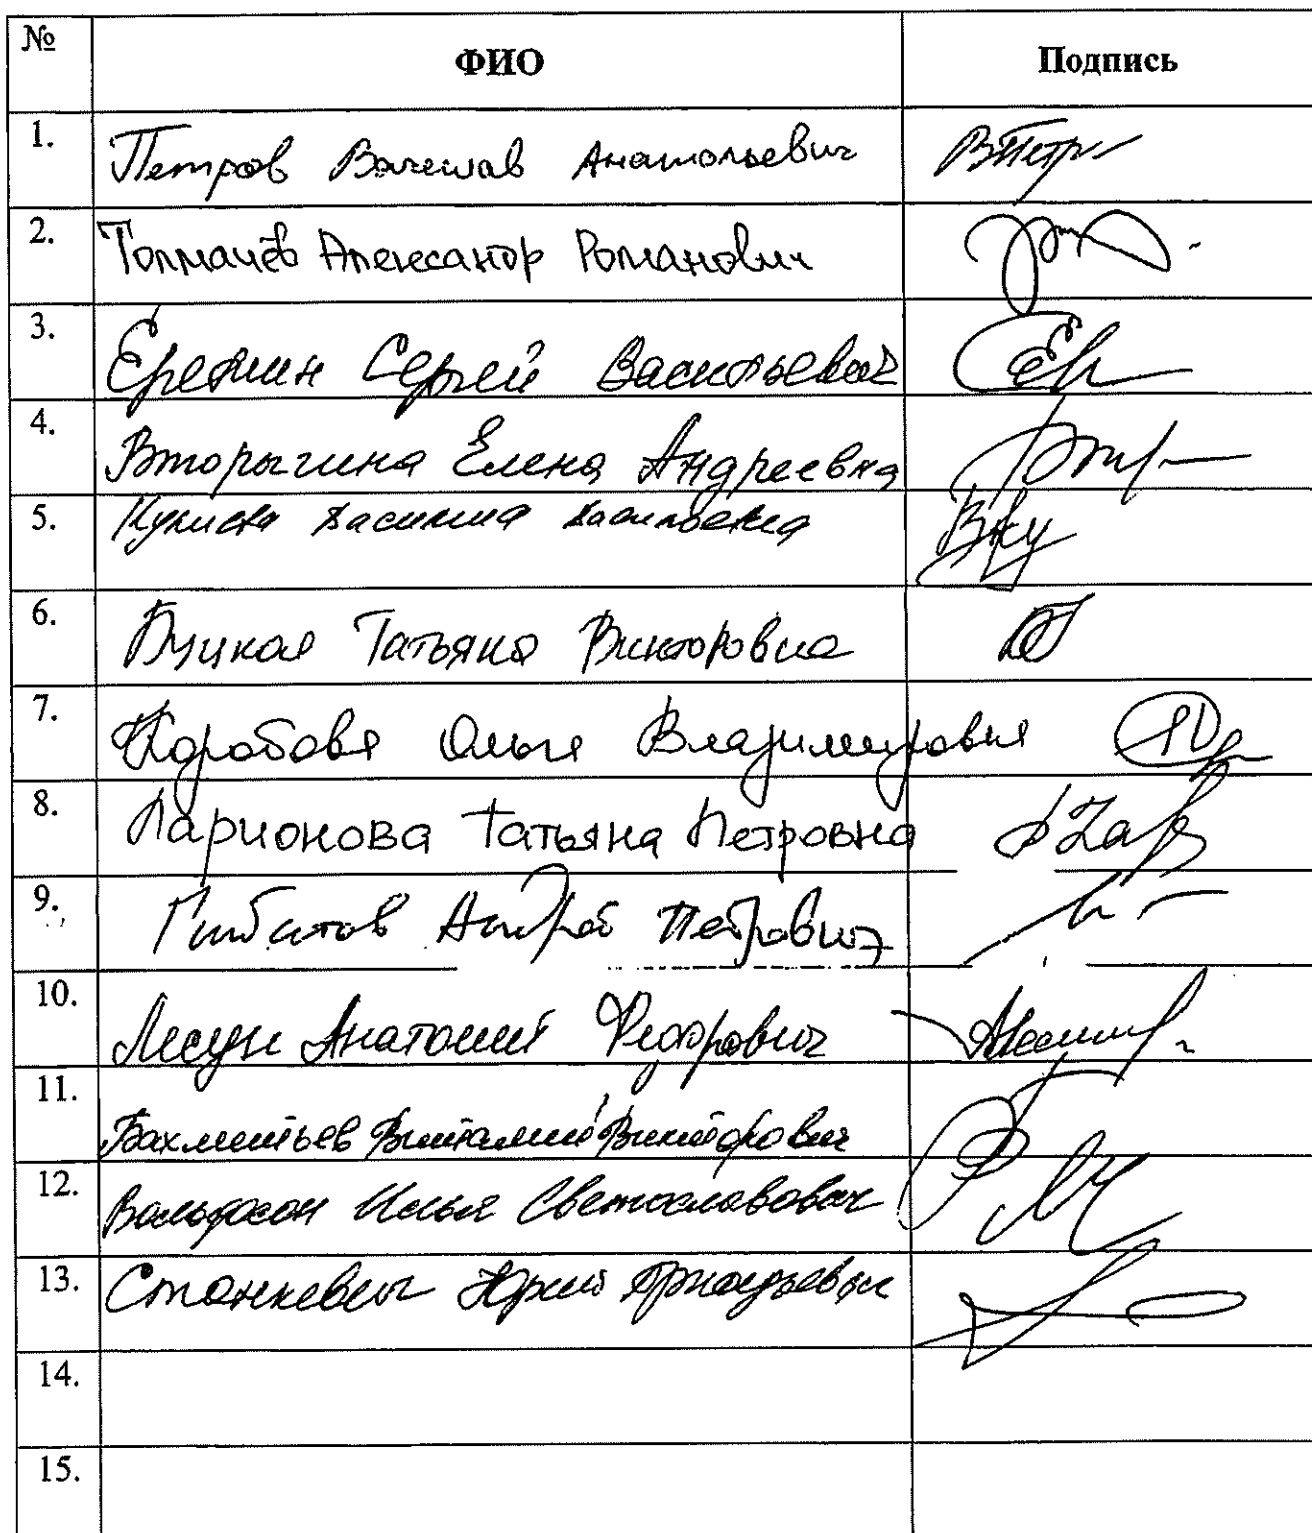 № ФИО Подпись
1. Петров Вячеслав Анатольевич
2. Толмачёв Александр Романович
3. Еремин Сергей Васильевич
4. Вторыгина Елена Андреевна
5. Василина Васильевна
6. Буцкая Татьяна Викторовна
7. Коробова Ольга Владимировна
8. Ларионова Татьяна Петровна
9. Гибатов Андрей Петрович
10. Лесун Анатолий Федорович
11. Бахметьев Виталий Викторович
12. Вольфсон Илья Светославович
13. Станкевич Юрий Аркадьевич
14.
15.